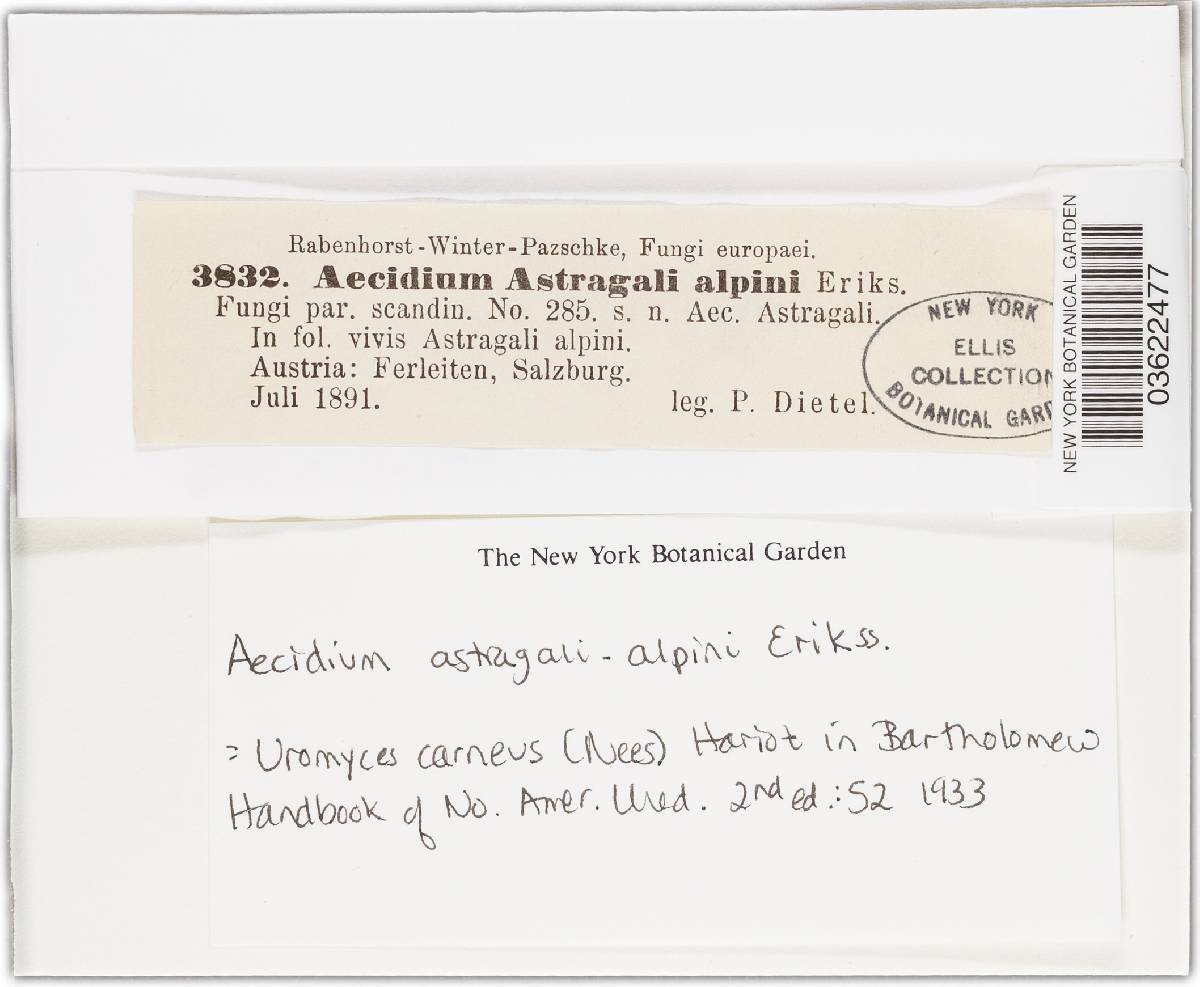 Rabenhorst-Winter-Pazschke, Fungi europaei.
3832. Aecidium Astragali alpini Eriks.
Fungi par. scandin. No. 285. s. n. Aec. Astragali.
In fol. vivis Astragali alpini.
Austria: Ferleiten, Salzburg.
Juli 1891. leg. P. Dietel.
NEW YORK
ELLIS
COLLECTION
BOTANICAL GARD
NEW YORK BOTANICAL GARDEN
03622477
The New York Botanical Garden
Aecidium astragali-alpini Erikss.
= Uromyces carneus (Nees) Hariot in Bartholomew
Handbook of No. Amer. Ured. 2nd ed.: 52 1933